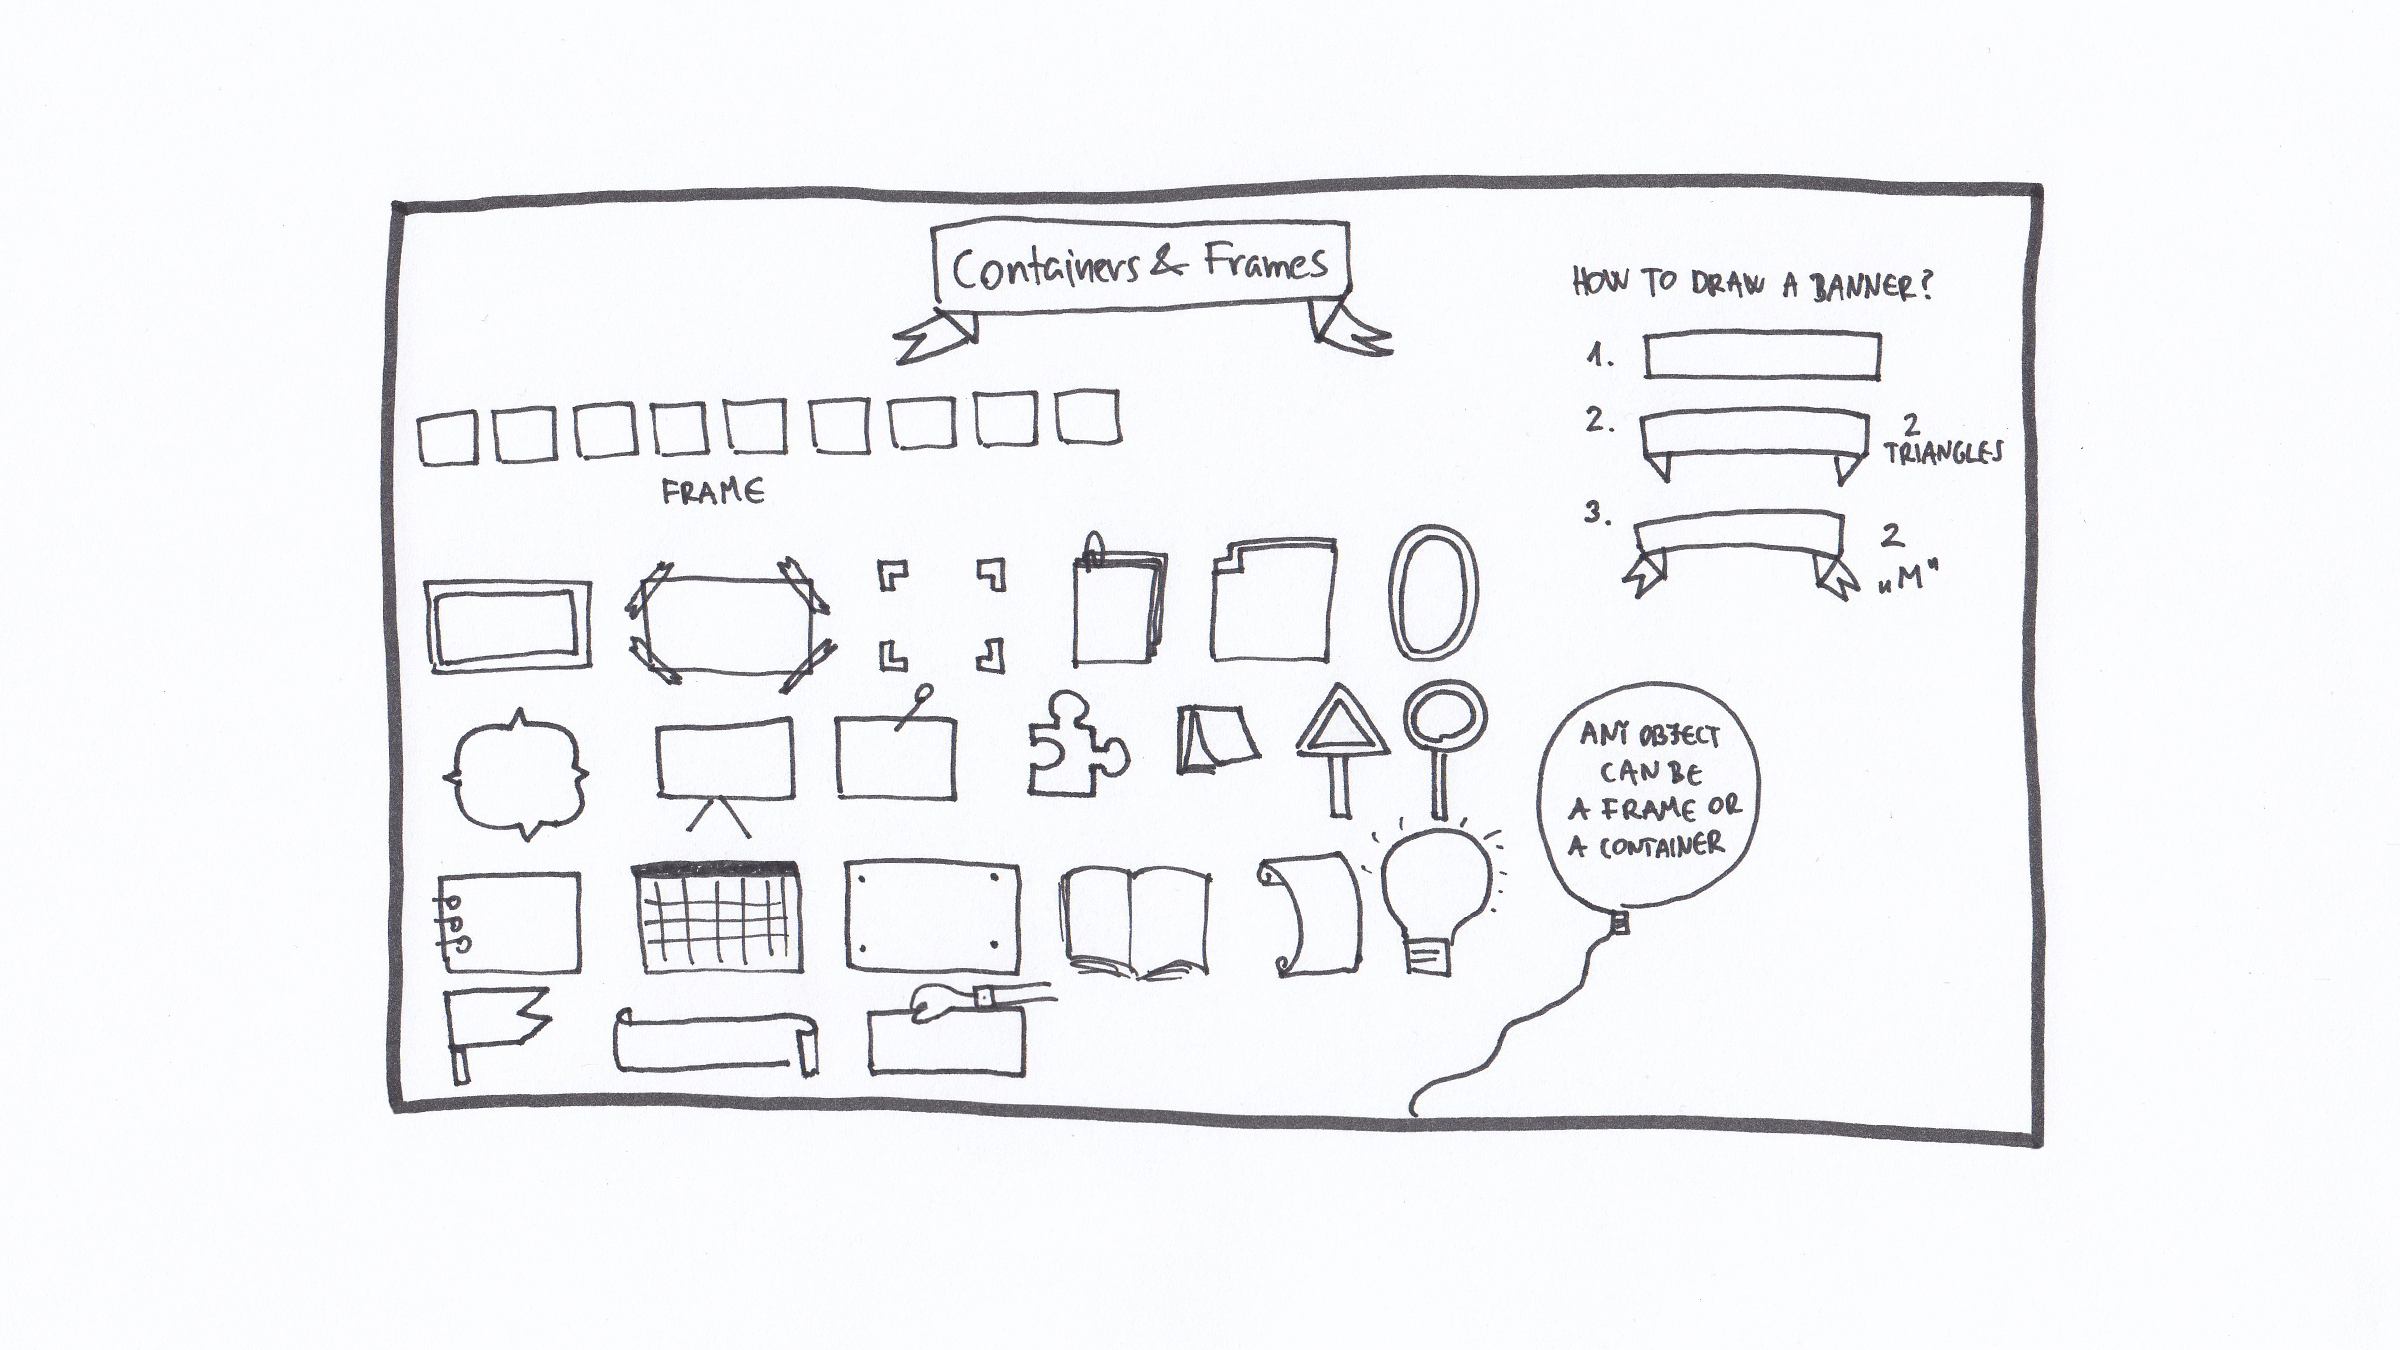 Containers & Frames
HOW TO DRAW A BANNER?
1.
2.
2
TRIANGLES
3.
2
„M"
FRAME
ANY OBJECT
CAN BE
A FRAME OR
A CONTAINER